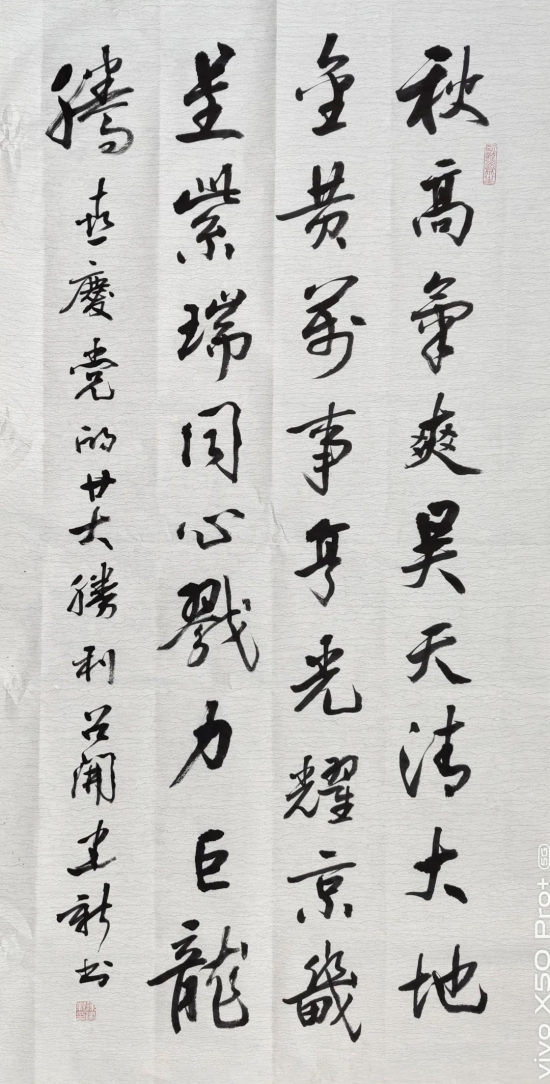 秋高氣爽昊天清大地
金黄萬事亨光耀京畿
呈紫瑞同心戮力巨龍
騰 喜慶党的廿大勝利召開建新书
vivo X50 Pro+ 5G